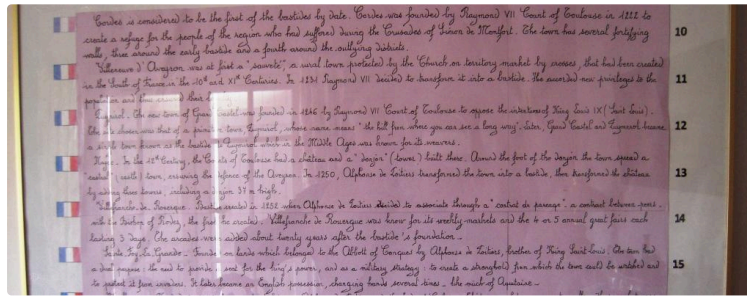 Cordes is considered to be the first of the bastides by date. Cordes was founded by Raymond VII Count of Toulouse in 1222 to
create a refuge for the people of the region who had suffered during the Crusades of Simon de Montfort. The town has several fortifying
walls, three around the early bastide and a fourth around the outlying districts.
10
Villeneuve d'Aveyron was at first a "sauveté", a rural town protected by the Church on territory market by crosses, that had been created
in the South of France in the 10th and XIth Centuries. In 1231 Raymond VII decided to transform it into a bastide. He awarded new privileges to the
population and thus
11
The new town of Grand Castel was founded in 1246 by Raymond VII Count of Toulouse to oppose the intentions of King Louis IX (Saint Louis).
The site chosen was that of a primitive town, whose name means "the hill from where you can see a long way". Later, Grand Castel and became
a single town known as the bastide which in the Middle Ages was known for its weavers.
12
Najac. In the 12th Century, the Counts of Toulouse had a château and a "donjon" (tower) built there. Around the foot of the donjon the town spread a
castle town, ensuring the defence of the Aveyron. In 1250, Alphonse de Poitiers transformed the town into a bastide, then transformed the château
by adding three towers, including a donjon 37 m high.
13
Villefranche de Rouergue. Bastide created in 1252 when Alphonse de Poitiers decided to associate through a "contrat de pareage", a contract between peers,
with the Bishop of Rodez, the first he created. Villefranche de Rouergue was know for its weekly markets and the 4 or 5 annual great fairs each
lasting 3 days. The arcades were added about twenty years after the bastide's foundation.
14
Sainte Foy-la-Grande. Founded on lands which belonged to the Abbott of Conques by Alphonse de Poitiers, brother of King Saint-Louis. The town had
a dual purpose: the need to provide a seat for the king's power, and as a military strategy: to create a stronghold from which the town could be watched and
to protect it from invaders. It later became an English possession, changing hands several times, like much of Aquitaine.
15